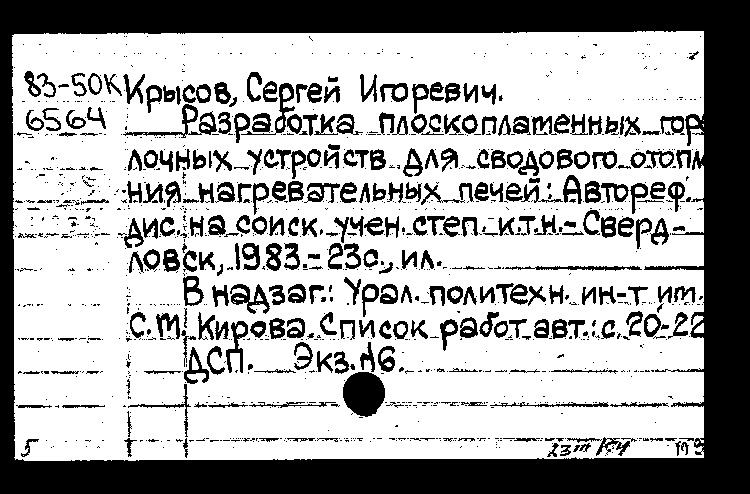 83-50К Крысов, Сергей Игоревич.
6564 Разработка плоскопламенных горе
лочных устройств для сводового отопле
ния нагревательных печей: Автореф.
дис. на соиск. учен. степ. к.т.н.- Сверд-
ловск, 1983.- 23с., ил.
В надзаг.: Урал. политехн. ин-т им.
С.М. Кирова. Список работ авт.: с. 20-22
ДСП. Экз. №6.
5